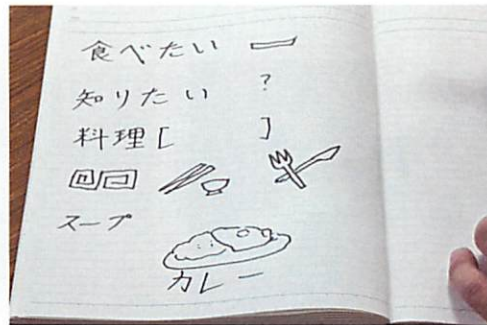 食べたい
知りたい ?
料理[ ]
スープ
カレー